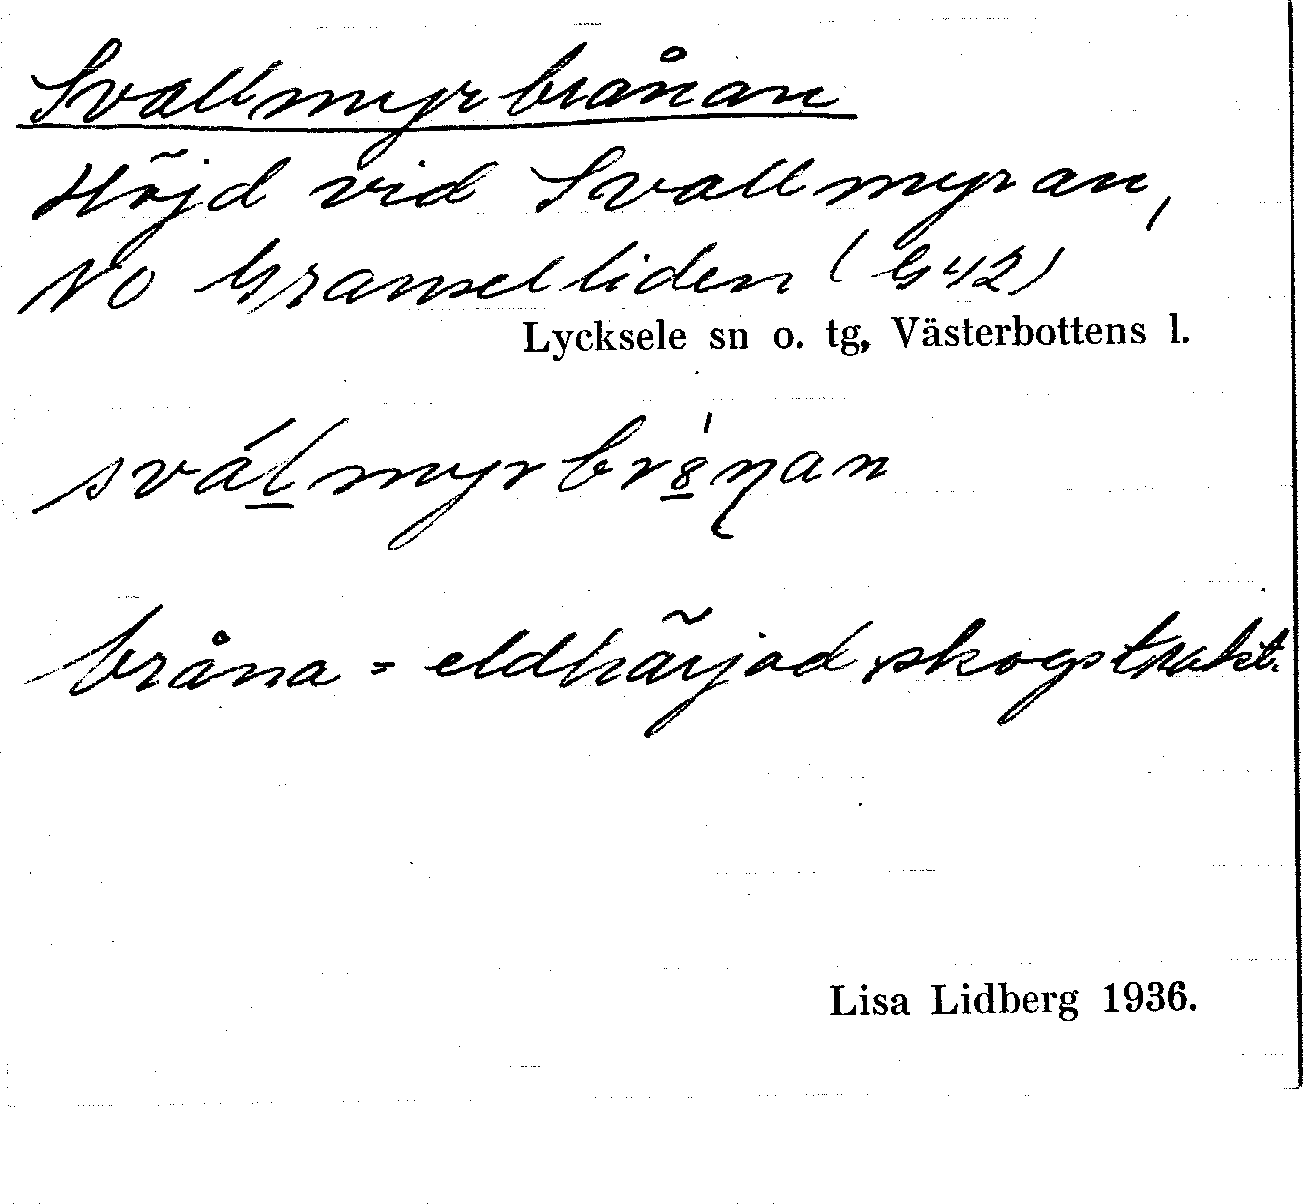 Svallmyrbrånan
Höjd vid Svallmyran,
NO Granselliden (G42)
Lycksele sn o. tg, Västerbottens l.
bråna = eldhärjad skogstrakt.
Lisa Lidberg 1936.